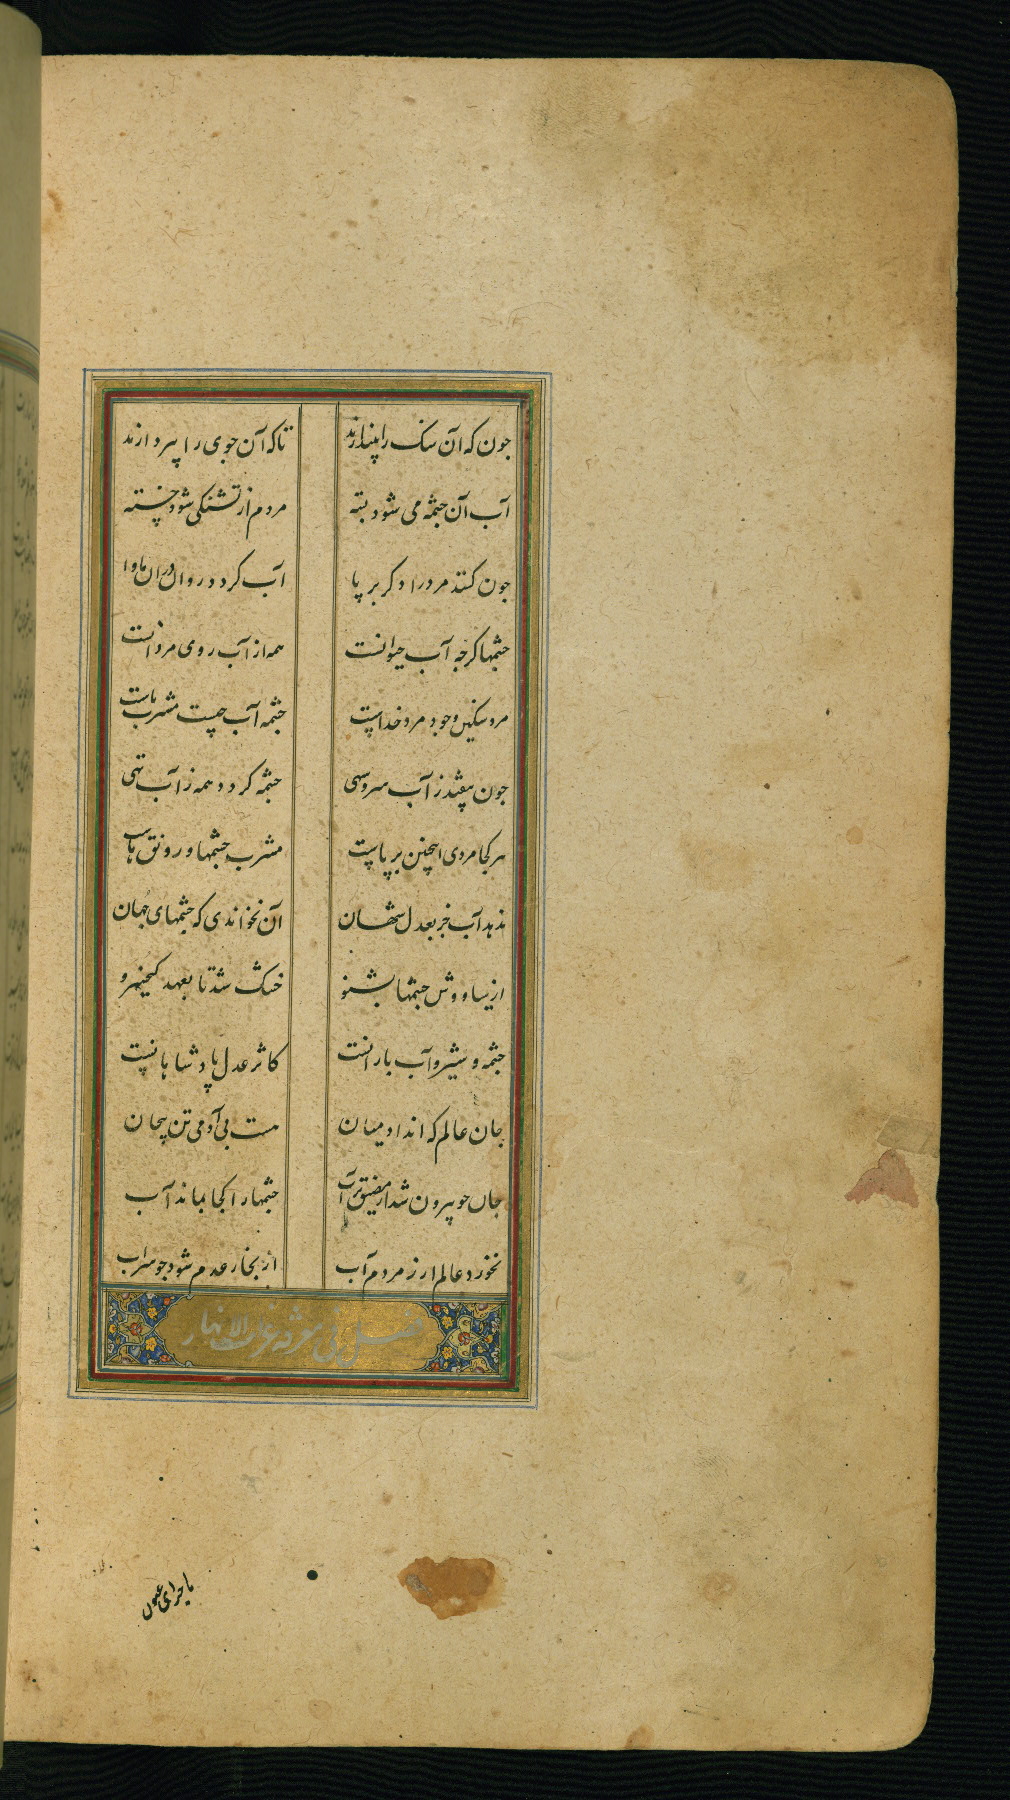 جون که آن سنک را بیندازند تاکه آن جوی را بپردازند
آب آن جشمه می شود بسته مردم از تشنکی شود خسته
جون کنند مرد را دکر بر پا آب کردد روان دران ماوا
جشمها کرجه آب حیوانست همه از آب روی مردانست
مرد سنکین وجود مرد خداست جشمه آب جیست مشرب ماست
جون بیفتد ز آب سرو سهی جشمه کردد همه ز آب تهی
هر کجا مردی اینجنین بر پاست مشرب جشمها و رونق ماست
ندهد آب جز بعدل شهان آن نخواندی که جشمهای جهان
از سیاووش جشمها بشنو خشک شد تا بعهد کیخسرو
جشمه و شیر و آب بارانست کاثر عدل پادشاهانست
جان عالم که اند ادمیان هست بی آدمی تن بیجان
جان جو بیرون شد از مضیق جشمها را کجا بماند آب
نخورد عالم ار ز مردم آب از بخار عدم شود جو سراب
فصل فی معرفة غرائب الانهار
ماجرای عیون